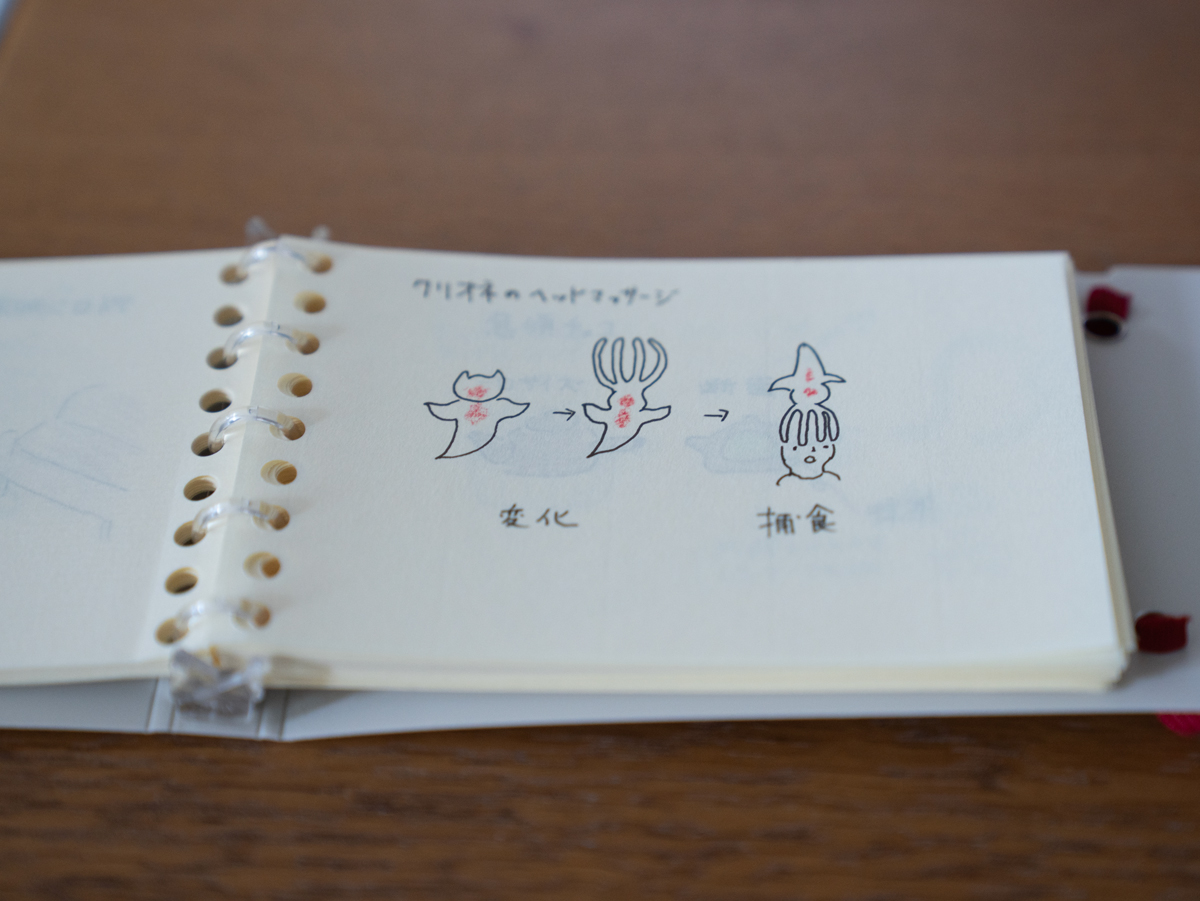 クリオネのヘッドマッサージ
変化
捕食